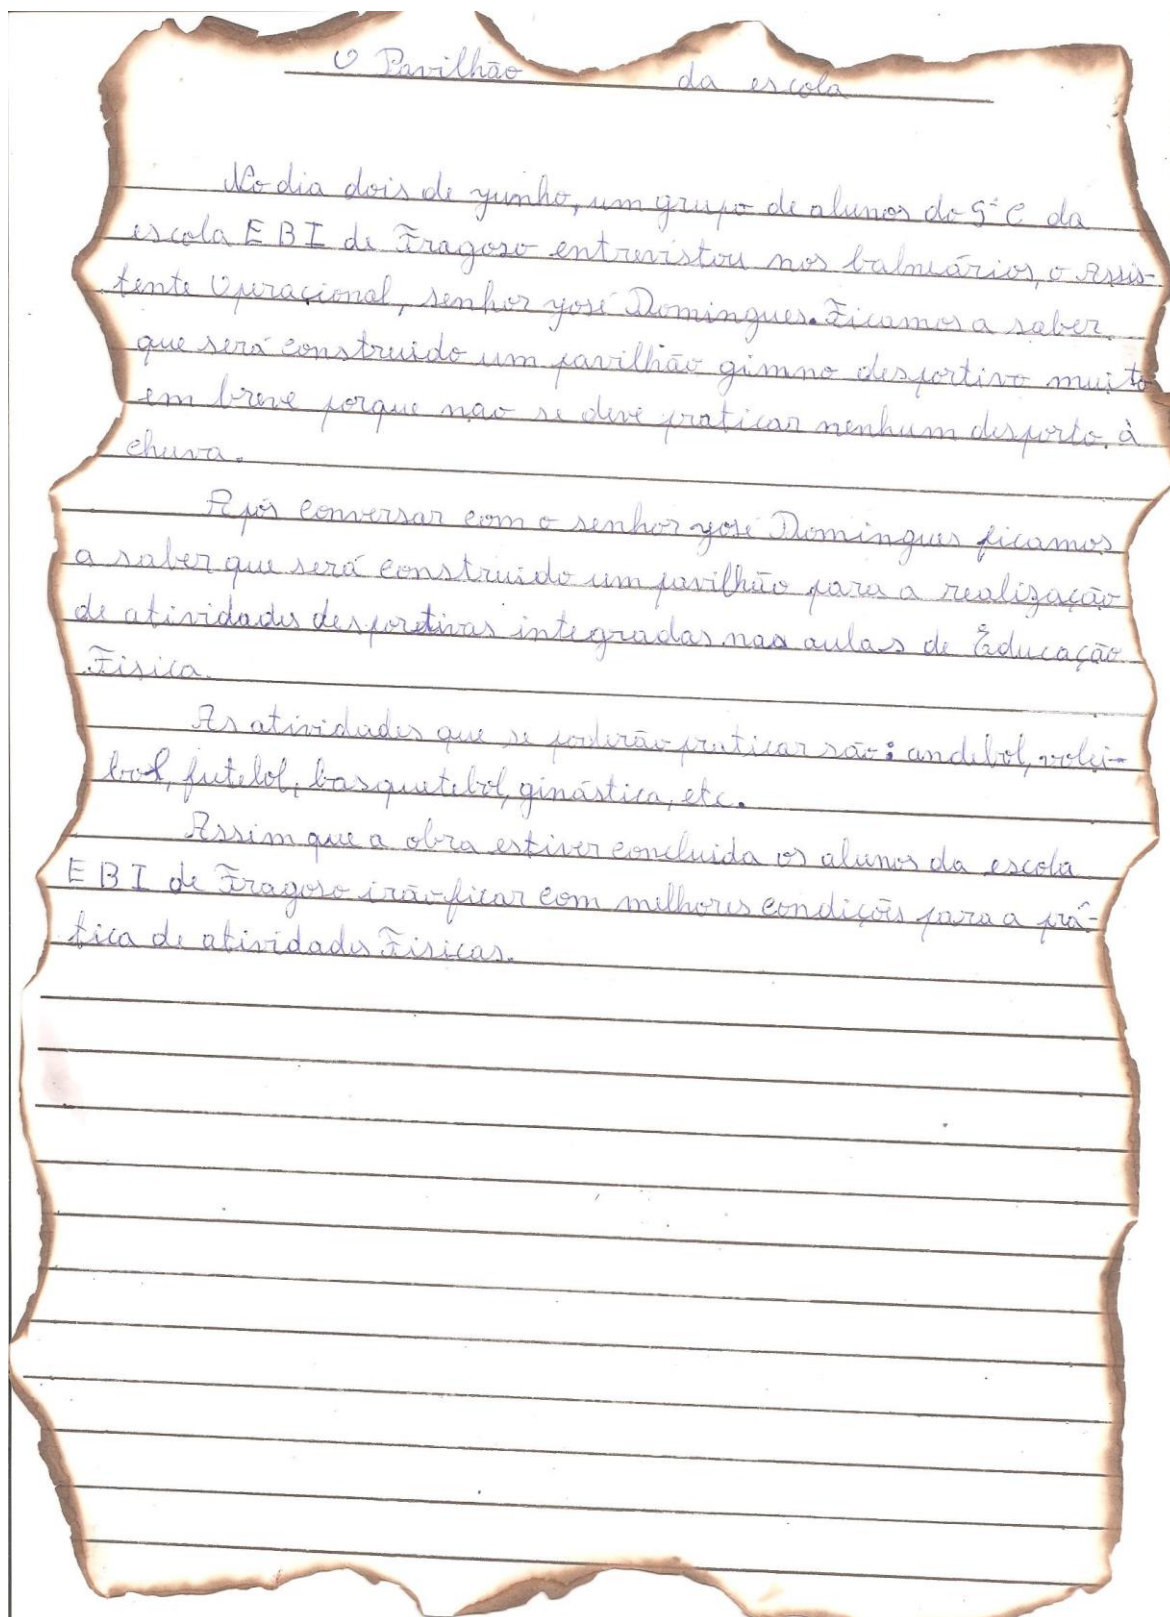 O Pavilhão da escola
No dia dois de junho, um grupo de alunos do 5º C da
escola EBI de Fragoso entrevistou nos balneários, o Assis-
tente Operacional, senhor José Domingues. Ficamos a saber
que será construido um pavilhão gimno desportivo muito
em breve porque nao se deve praticar nenhum desporto, à
chuva.
Após conversar com o senhor José Domingues ficamos
a saber que será construido um pavilhão para a realização
de atividades desportivas integradas nas aulas de Educação
Fisica.
As atividades que se poderão praticar são: andebol, volei-
bol, futebol, basquetebol, ginástica, etc.
Assim que a obra estiver concluida os alunos da escola
EBI de Fragoso irão ficar com melhores condições para a prá-
tica de atividades Fisicas.